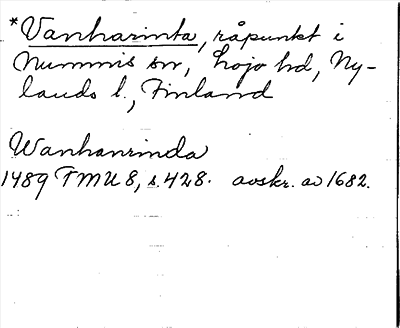 *Vanharinta, råpunkt i
Nummis sn, Lojo hd, Ny-
lands l., Finland
Wanhanrinda
1489 FMU 8, s. 428. avskr. av 1682.